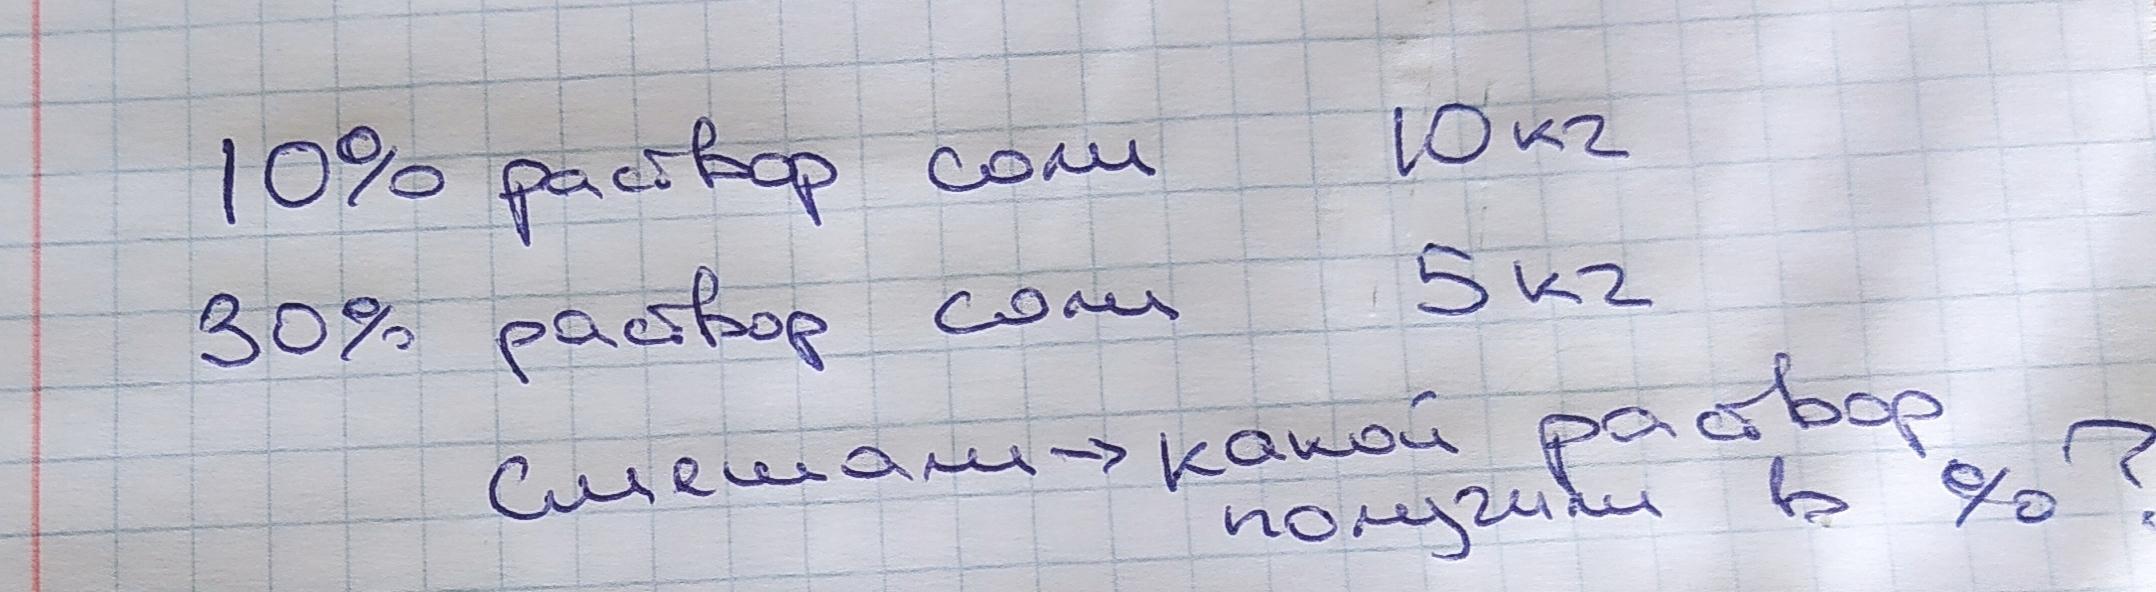 10% раствор соли 10 кг
30% раствор соли 5 кг
Смешали → какой раствор
получили в %?